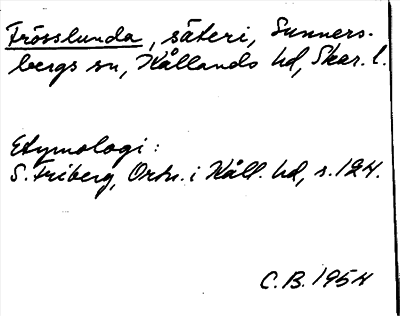 Frösslunda, säteri, Sunners-
bergs sn, Kållands hd, Skar. l.
Etymologi:
S. Friberg, Ortn. i Kåll. hd, s. 124.
C.B. 1954